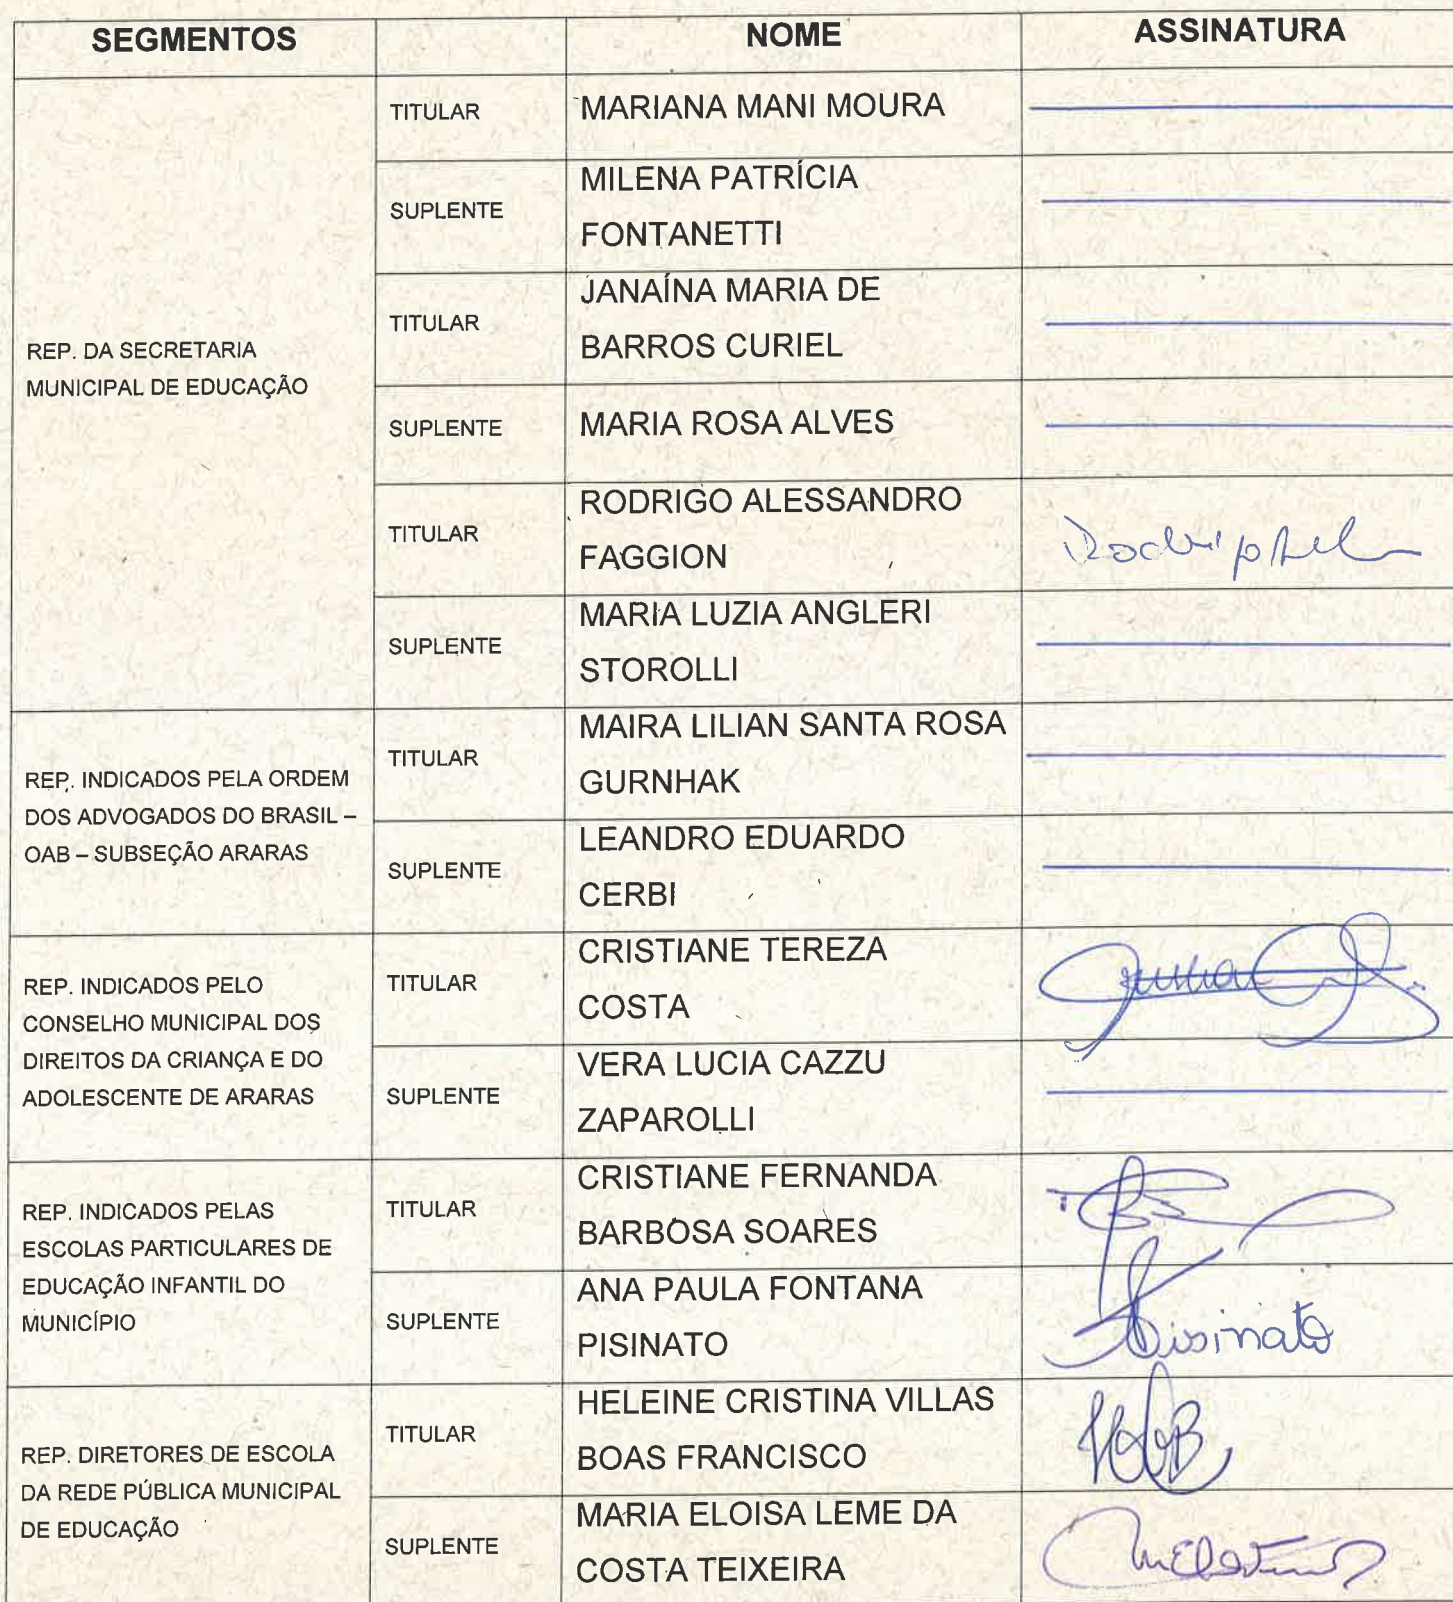 SEGMENTOS NOME ASSINATURA
REP. DA SECRETARIA
MUNICIPAL DE EDUCAÇÃO
TITULAR
MARIANA MANI MOURA
SUPLENTE
MILENA PATRÍCIA
FONTANETTI
TITULAR
JANAÍNA MARIA DE
BARROS CURIEL
SUPLENTE
MARIA ROSA ALVES
TITULAR
RODRIGO ALESSANDRO
FAGGION
SUPLENTE
MARIA LUZIA ANGLERI
STOROLLI
REP. INDICADOS PELA ORDEM
DOS ADVOGADOS DO BRASIL –
OAB – SUBSEÇÃO ARARAS
TITULAR
MAIRA LILIAN SANTA ROSA
GURNHAK
SUPLENTE
LEANDRO EDUARDO
CERBI
REP. INDICADOS PELO
CONSELHO MUNICIPAL DOS
DIREITOS DA CRIANÇA E DO
ADOLESCENTE DE ARARAS
TITULAR
CRISTIANE TEREZA
COSTA
SUPLENTE
VERA LUCIA CAZZU
ZAPAROLLI
REP. INDICADOS PELAS
ESCOLAS PARTICULARES DE
EDUCAÇÃO INFANTIL DO
MUNICÍPIO
TITULAR
CRISTIANE FERNANDA
BARBOSA SOARES
SUPLENTE
ANA PAULA FONTANA
PISINATO
Pisinato
REP. DIRETORES DE ESCOLA
DA REDE PÚBLICA MUNICIPAL
DE EDUCAÇÃO
TITULAR
HELEINE CRISTINA VILLAS
BOAS FRANCISCO
SUPLENTE
MARIA ELOISA LEME DA
COSTA TEIXEIRA